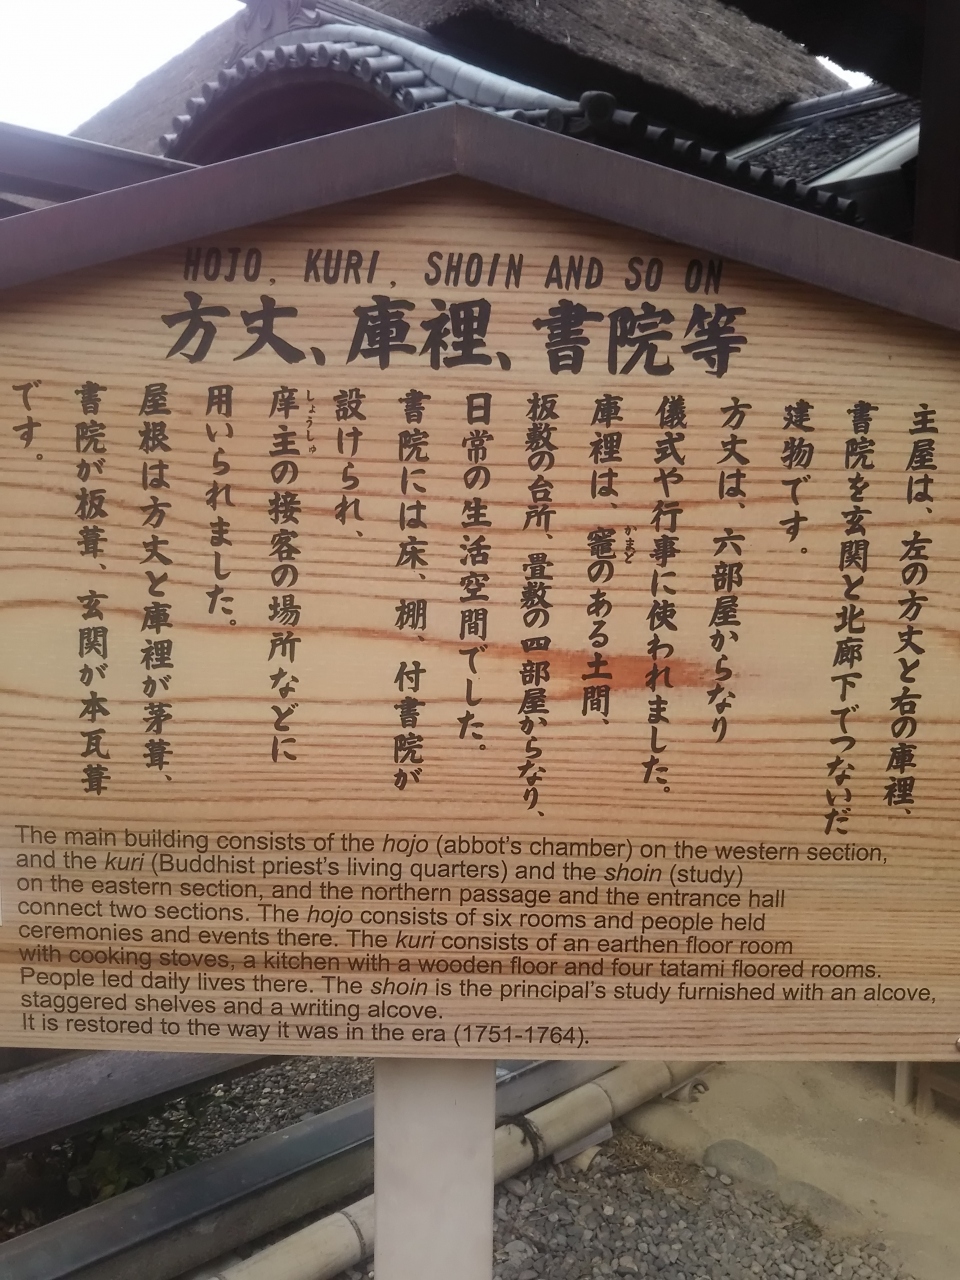 HOJO, KURI, SHOIN AND SO ON
方丈、庫裡、書院等
主屋は、左の方丈と右の庫裡、
書院を玄関と北廊下でつないだ
建物です。
方丈は、六部屋からなり
儀式や行事に使われました。
庫裡は、竈のある土間、
かまど
板敷の台所、畳敷の四部屋からなり、
日常の生活空間でした。
書院には床、棚、付書院が
設けられ、
庠主の接客の場所などに
しょうしゅ
用いられました。
屋根は方丈と庫裡が茅葺、
書院が板葺、玄関が本瓦葺
です。
The main building consists of the hojo (abbot's chamber) on the western section,
and the kuri (Buddhist priest's living quarters) and the shoin (study)
on the eastern section, and the northern passage and the entrance hall
connect two sections. The hojo consists of six rooms and people held
ceremonies and events there. The kuri consists of an earthen floor room
with cooking stoves, a kitchen with a wooden floor and four tatami floored rooms.
People led daily lives there. The shoin is the principal's study furnished with an alcove,
staggered shelves and a writing alcove.
It is restored to the way it was in the era (1751-1764).